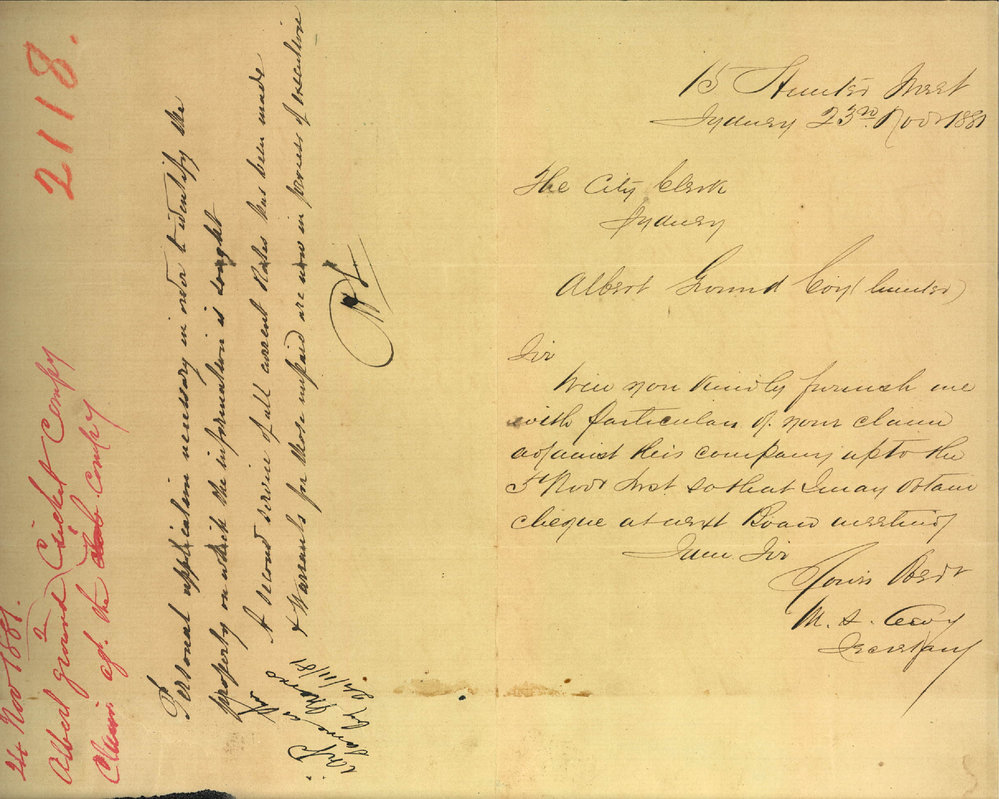 15 Hunter Street
Sydney 23rd Novr 1881
The City Clerk
Sydney
Albert Ground Coy (Limited)
Sir
Will you kindly furnish me
with particulars of your claim
against this company up to the
Novr Inst. so that I may obtain
cheque at next Board meeting
I am Sir
Yours Obedt
M. S. Levy
Secretary
2118.
24 Nov 1881.
Albert ground Cricket Company
Claim agt. the Comp'y
Personal application necessary in order to identify the
property on which the information is sought
A second service of all current Rates has been made
& Warrants for those unpaid are now in process of execution
24/11/81